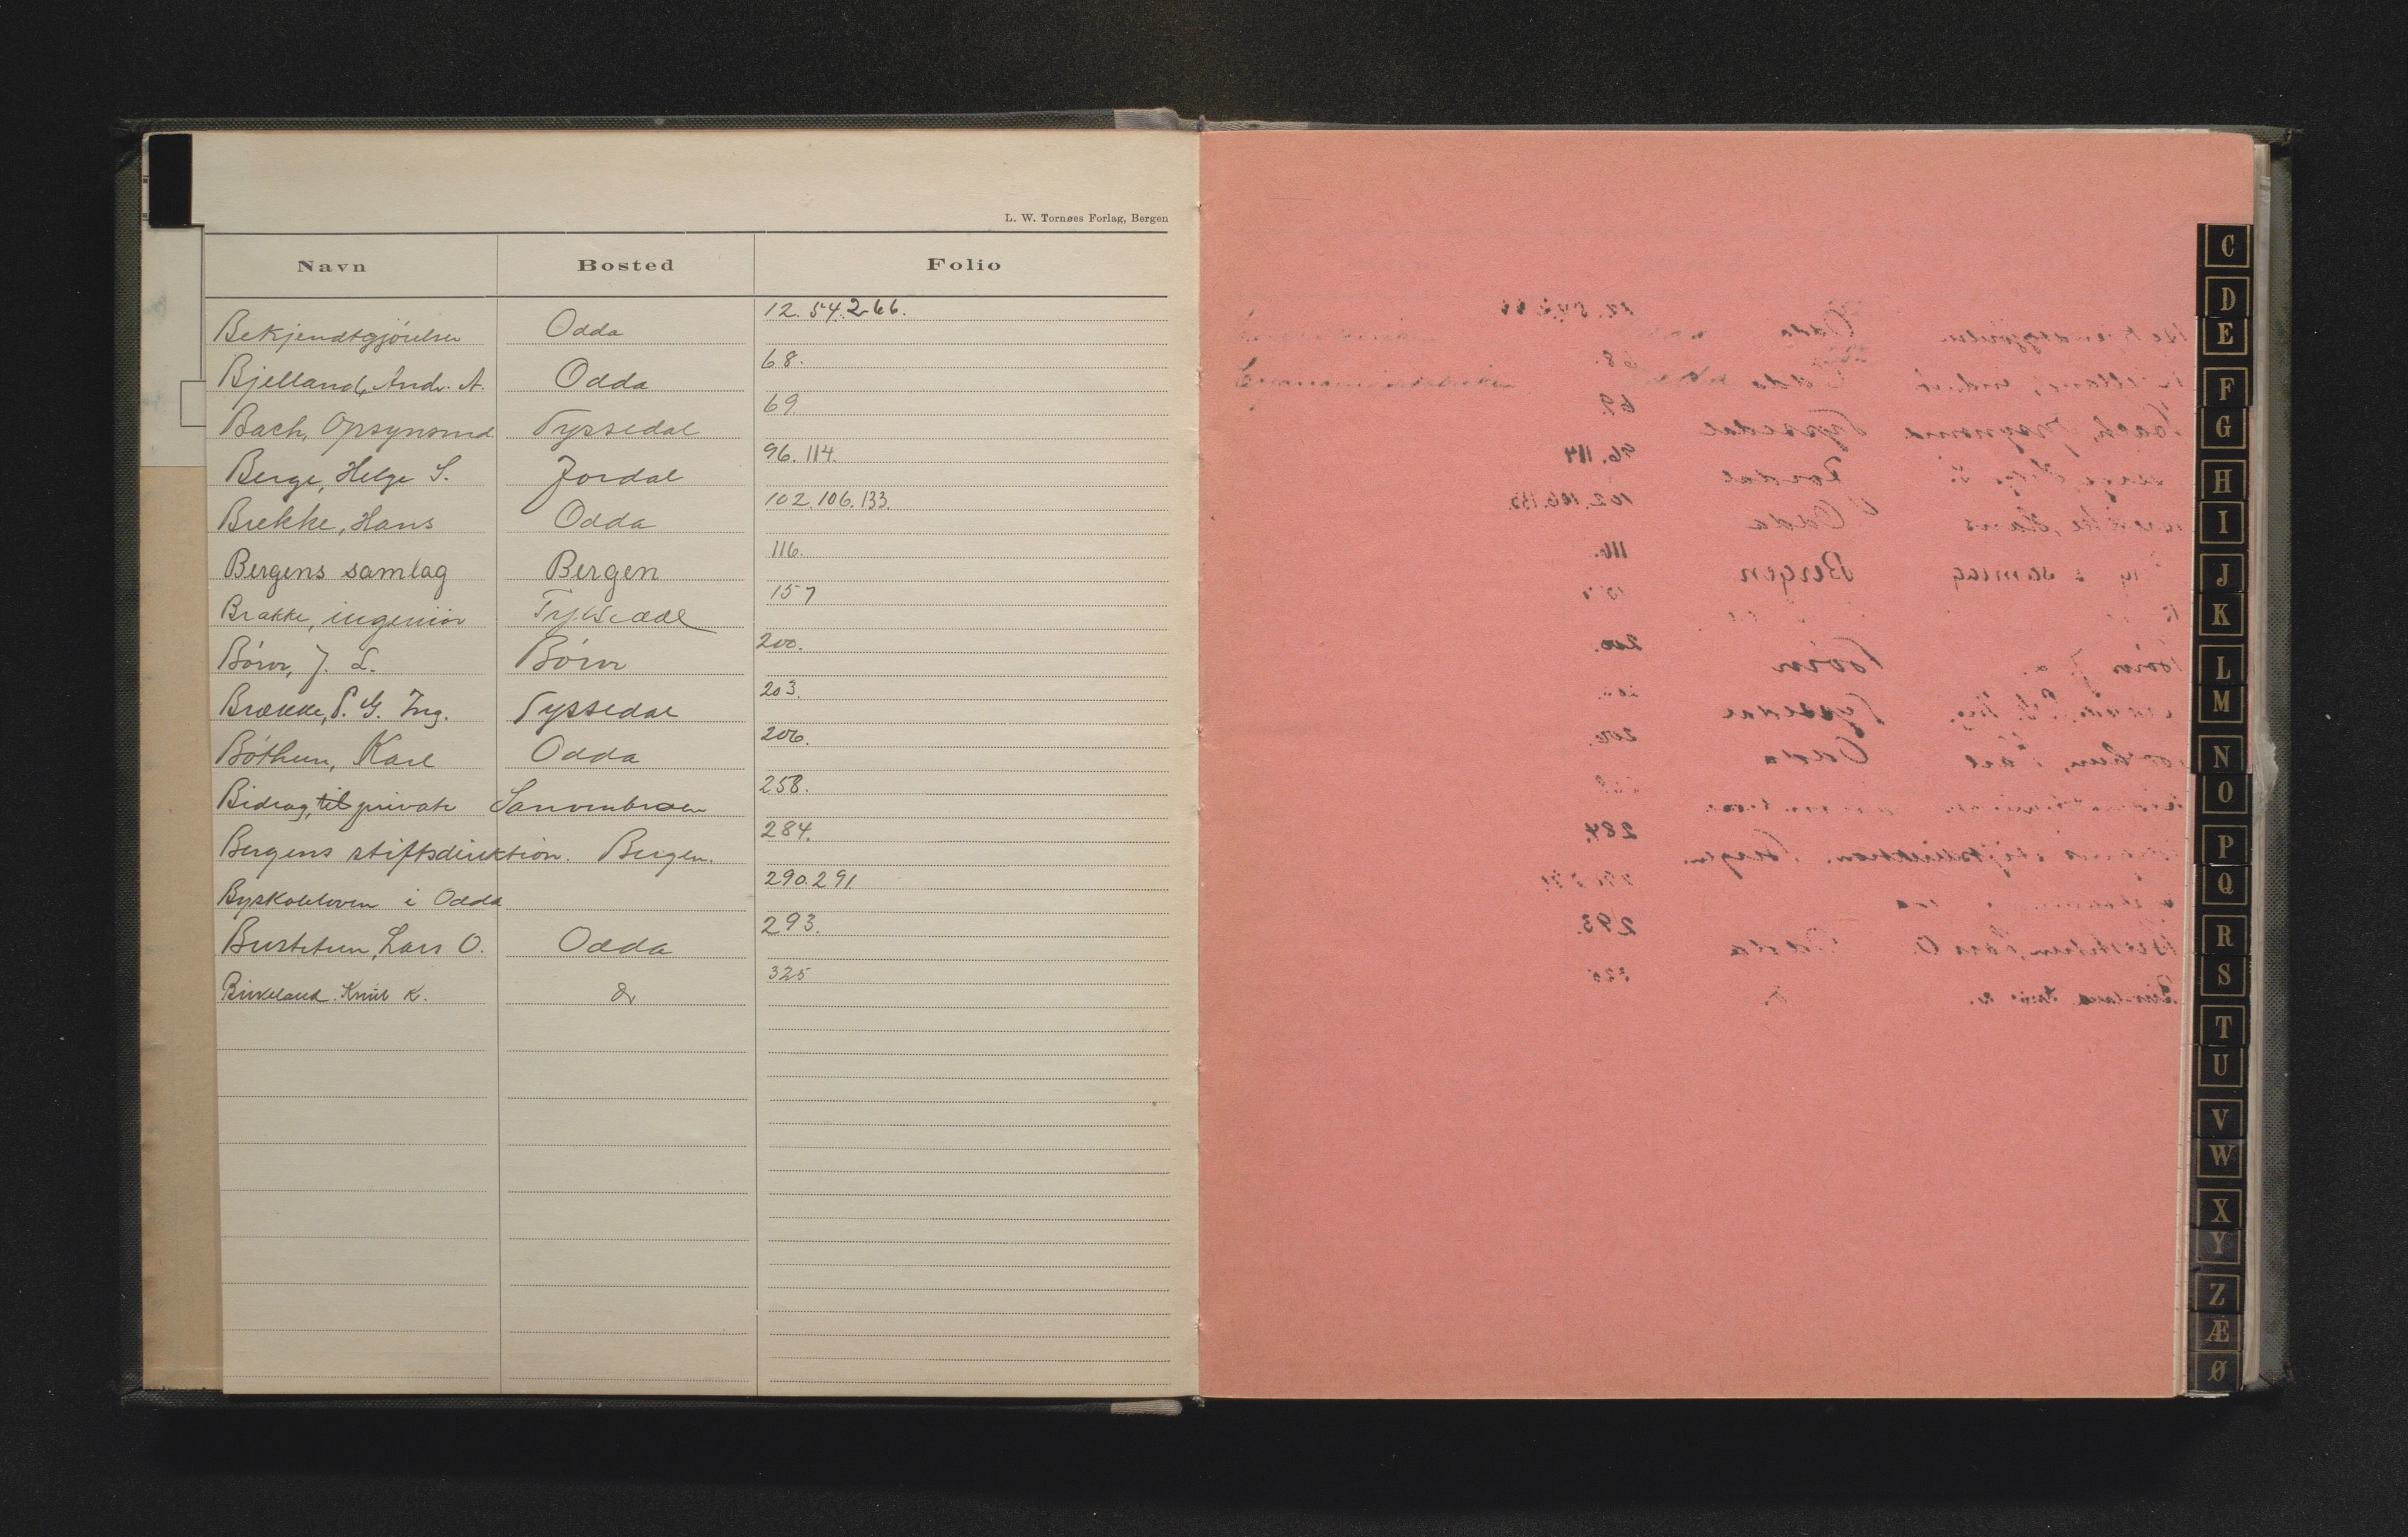 L. W. Tornøes Forlag, Bergen
Navn Bosted Folio
Bekjendtgjörelser Odda 12. 54. 266.
Bjelland, Andr. A. Odda 68.
Bach, Opsynsmd Tyssedal 69.
Berge, Helge S. Jordal 96. 114.
Brekke, Hans Odda 102. 106. 133.
Bergens samlag Bergen 116.
Brække, ingeniör Tyssedal 157
Börve, J. L. Börve 200.
Brække, P. G. Ing. Tyssedal 203.
Böthun, Karl Odda 206.
Bidrag, til private 258.
Bergens stiftsdirektion. Bergen. 284.
Byskoleloven i Odda 290. 291
Bustetun, Lars O. Odda 293.
Birkeland. Knut K. 325
C
D
E
F
G
H
I
J
K
L
M
N
O
P
Q
R
S
T
U
V
W
X
Y
Z
Æ
Ø